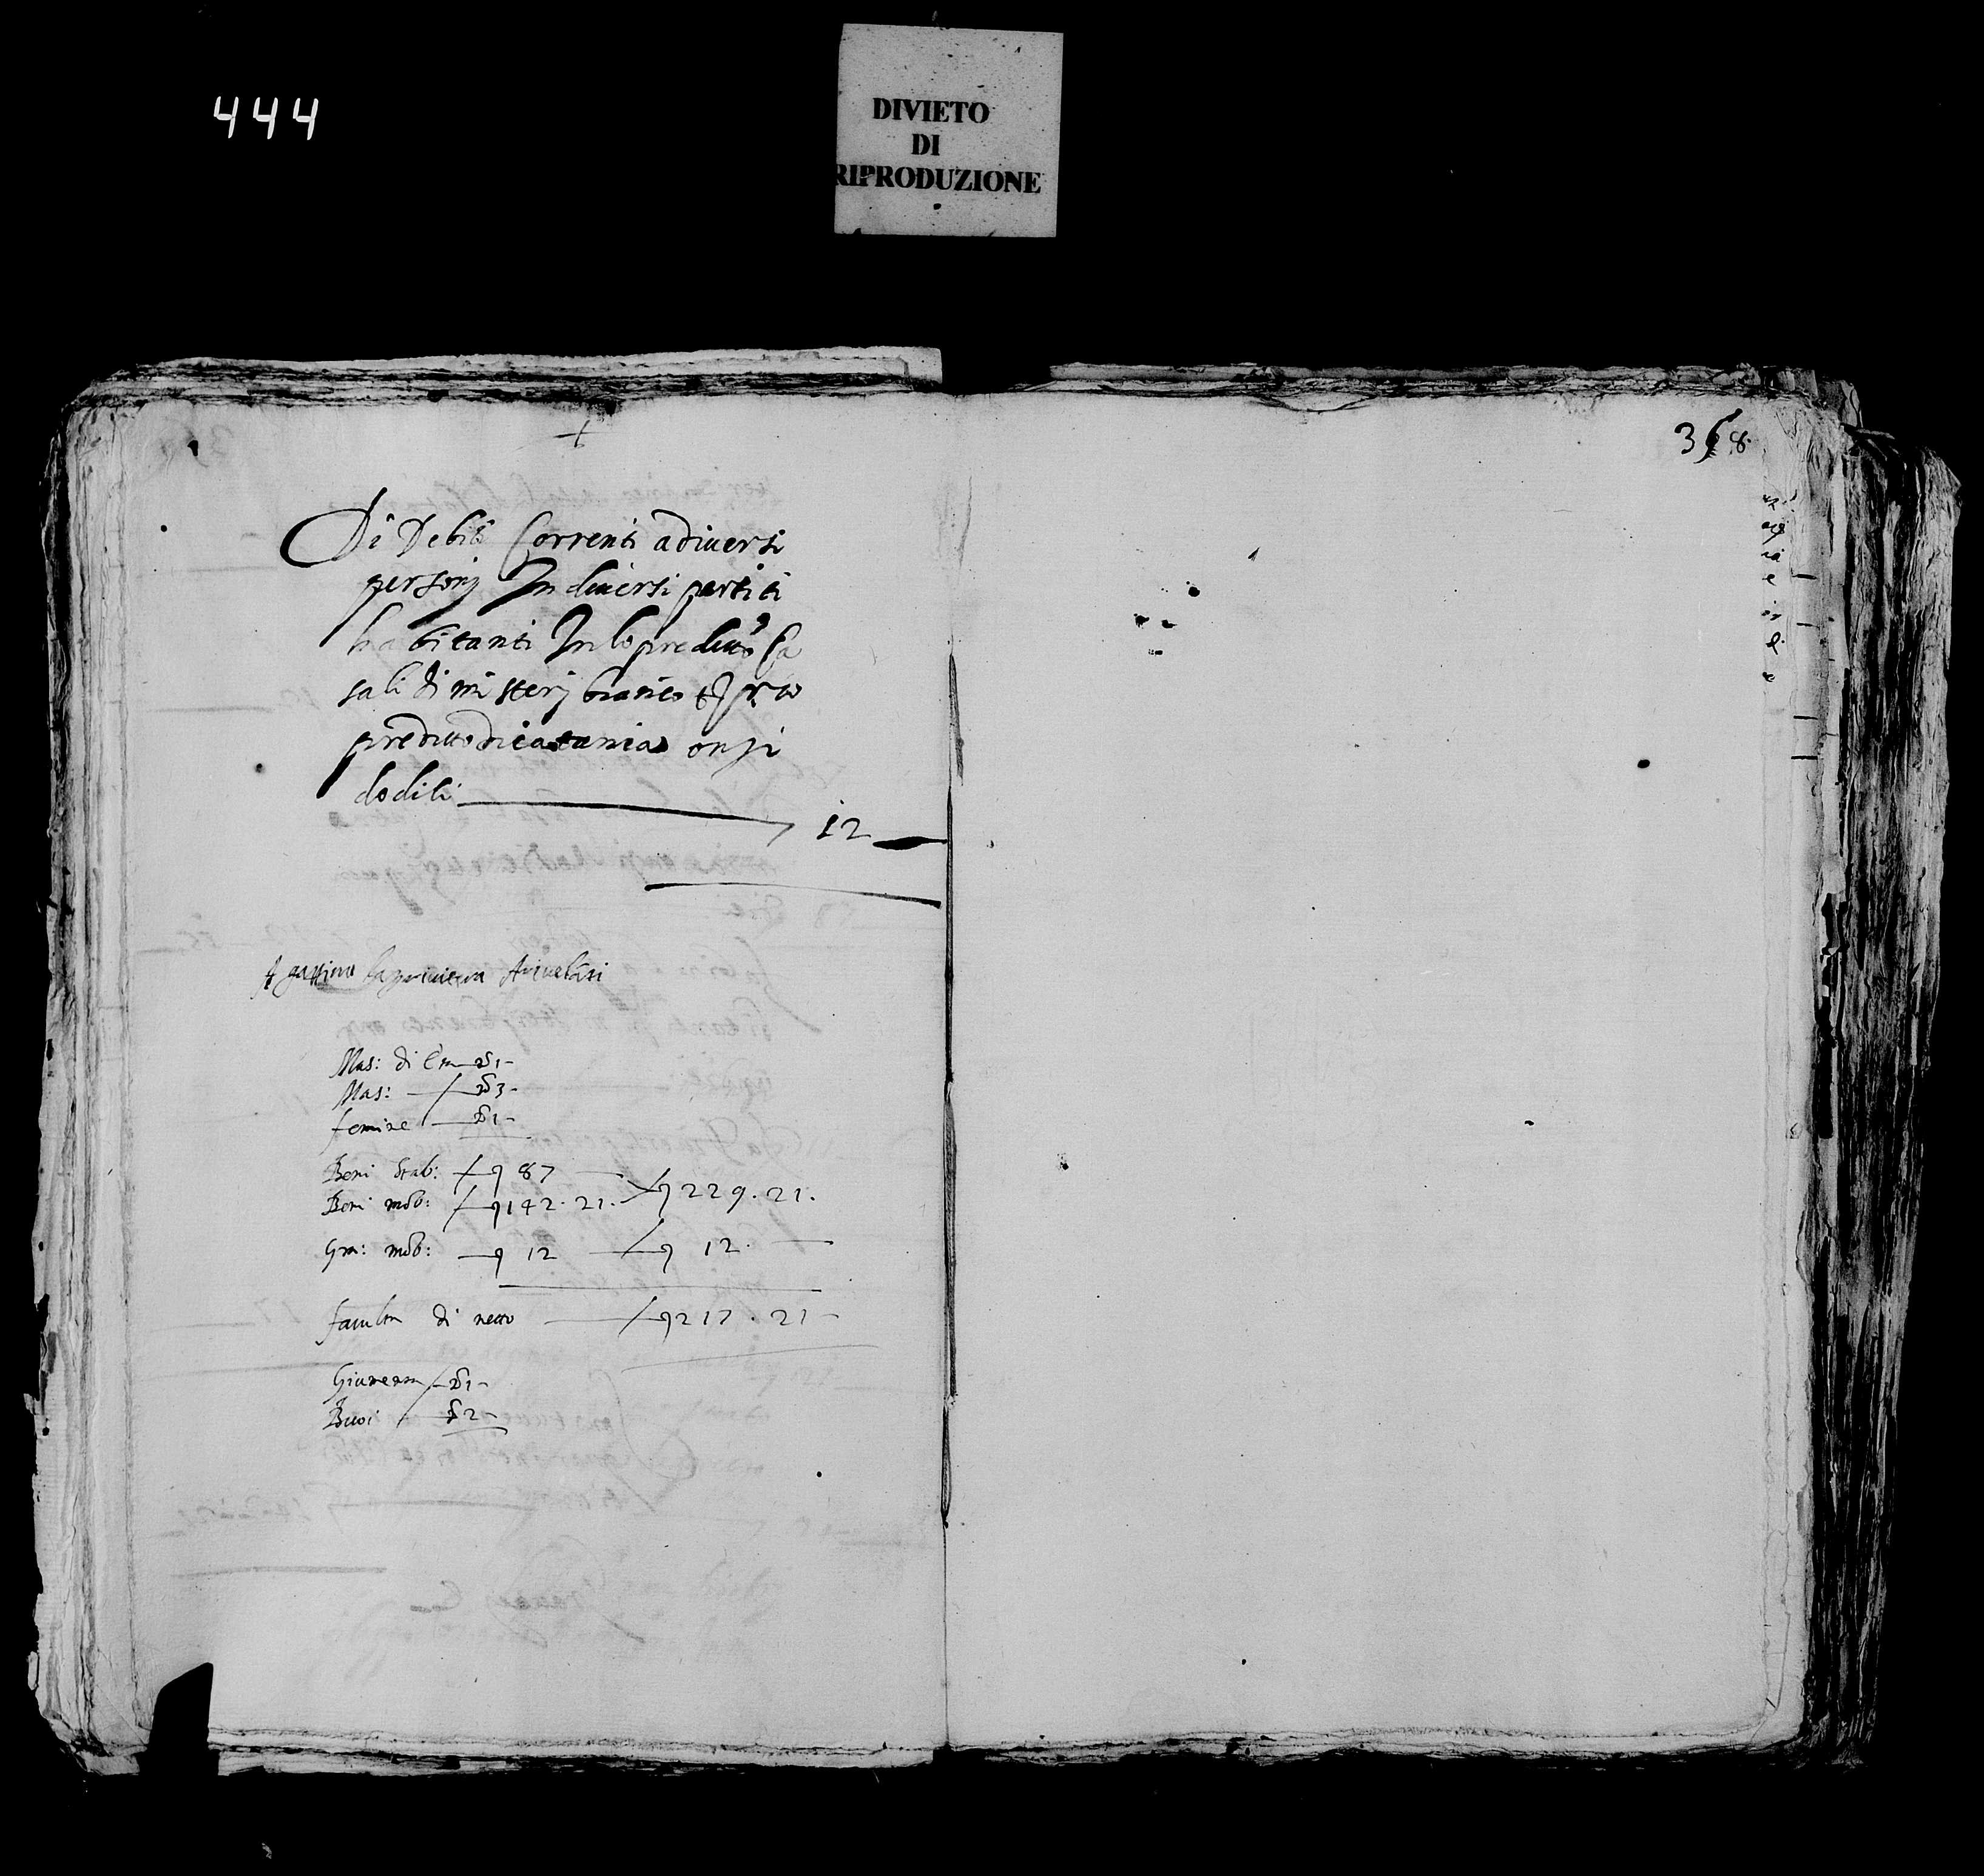 444
DIVIETO
DI
RIPRODUZIONE
368
Di Debiti Correnti a diversi
personi In diversi partiti
habitanti In lo preditto Ca
sali di misterj bianco et
preditto di catania onzi
dodili 12
Mas: di 1
Mas: 3
femine 1
Beni Stab: 87
Beni mob: 142.21. 229.21.
Gra: mob: 12 12.
facultà di netto 217.21
Giumenta 1
Buoi 2